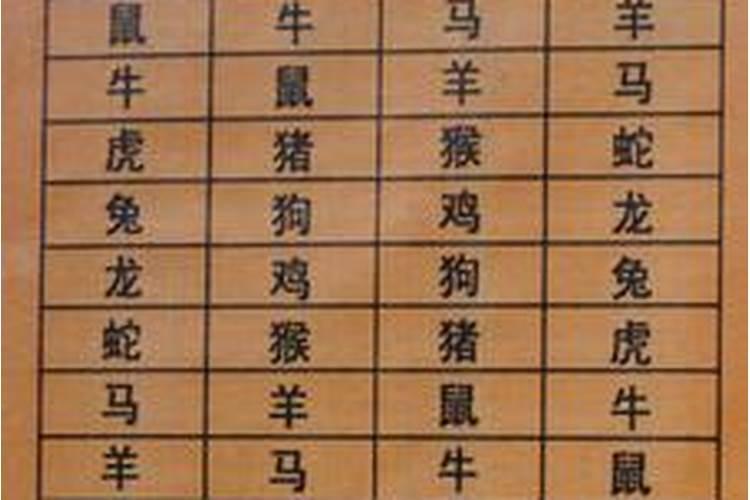 鼠 牛 马 羊
牛 鼠 羊 马
虎 猪 猴 蛇
兔 狗 鸡 龙
龙 鸡 狗 兔
蛇 猴 猪 虎
马 羊 鼠 牛
羊 马 牛 鼠